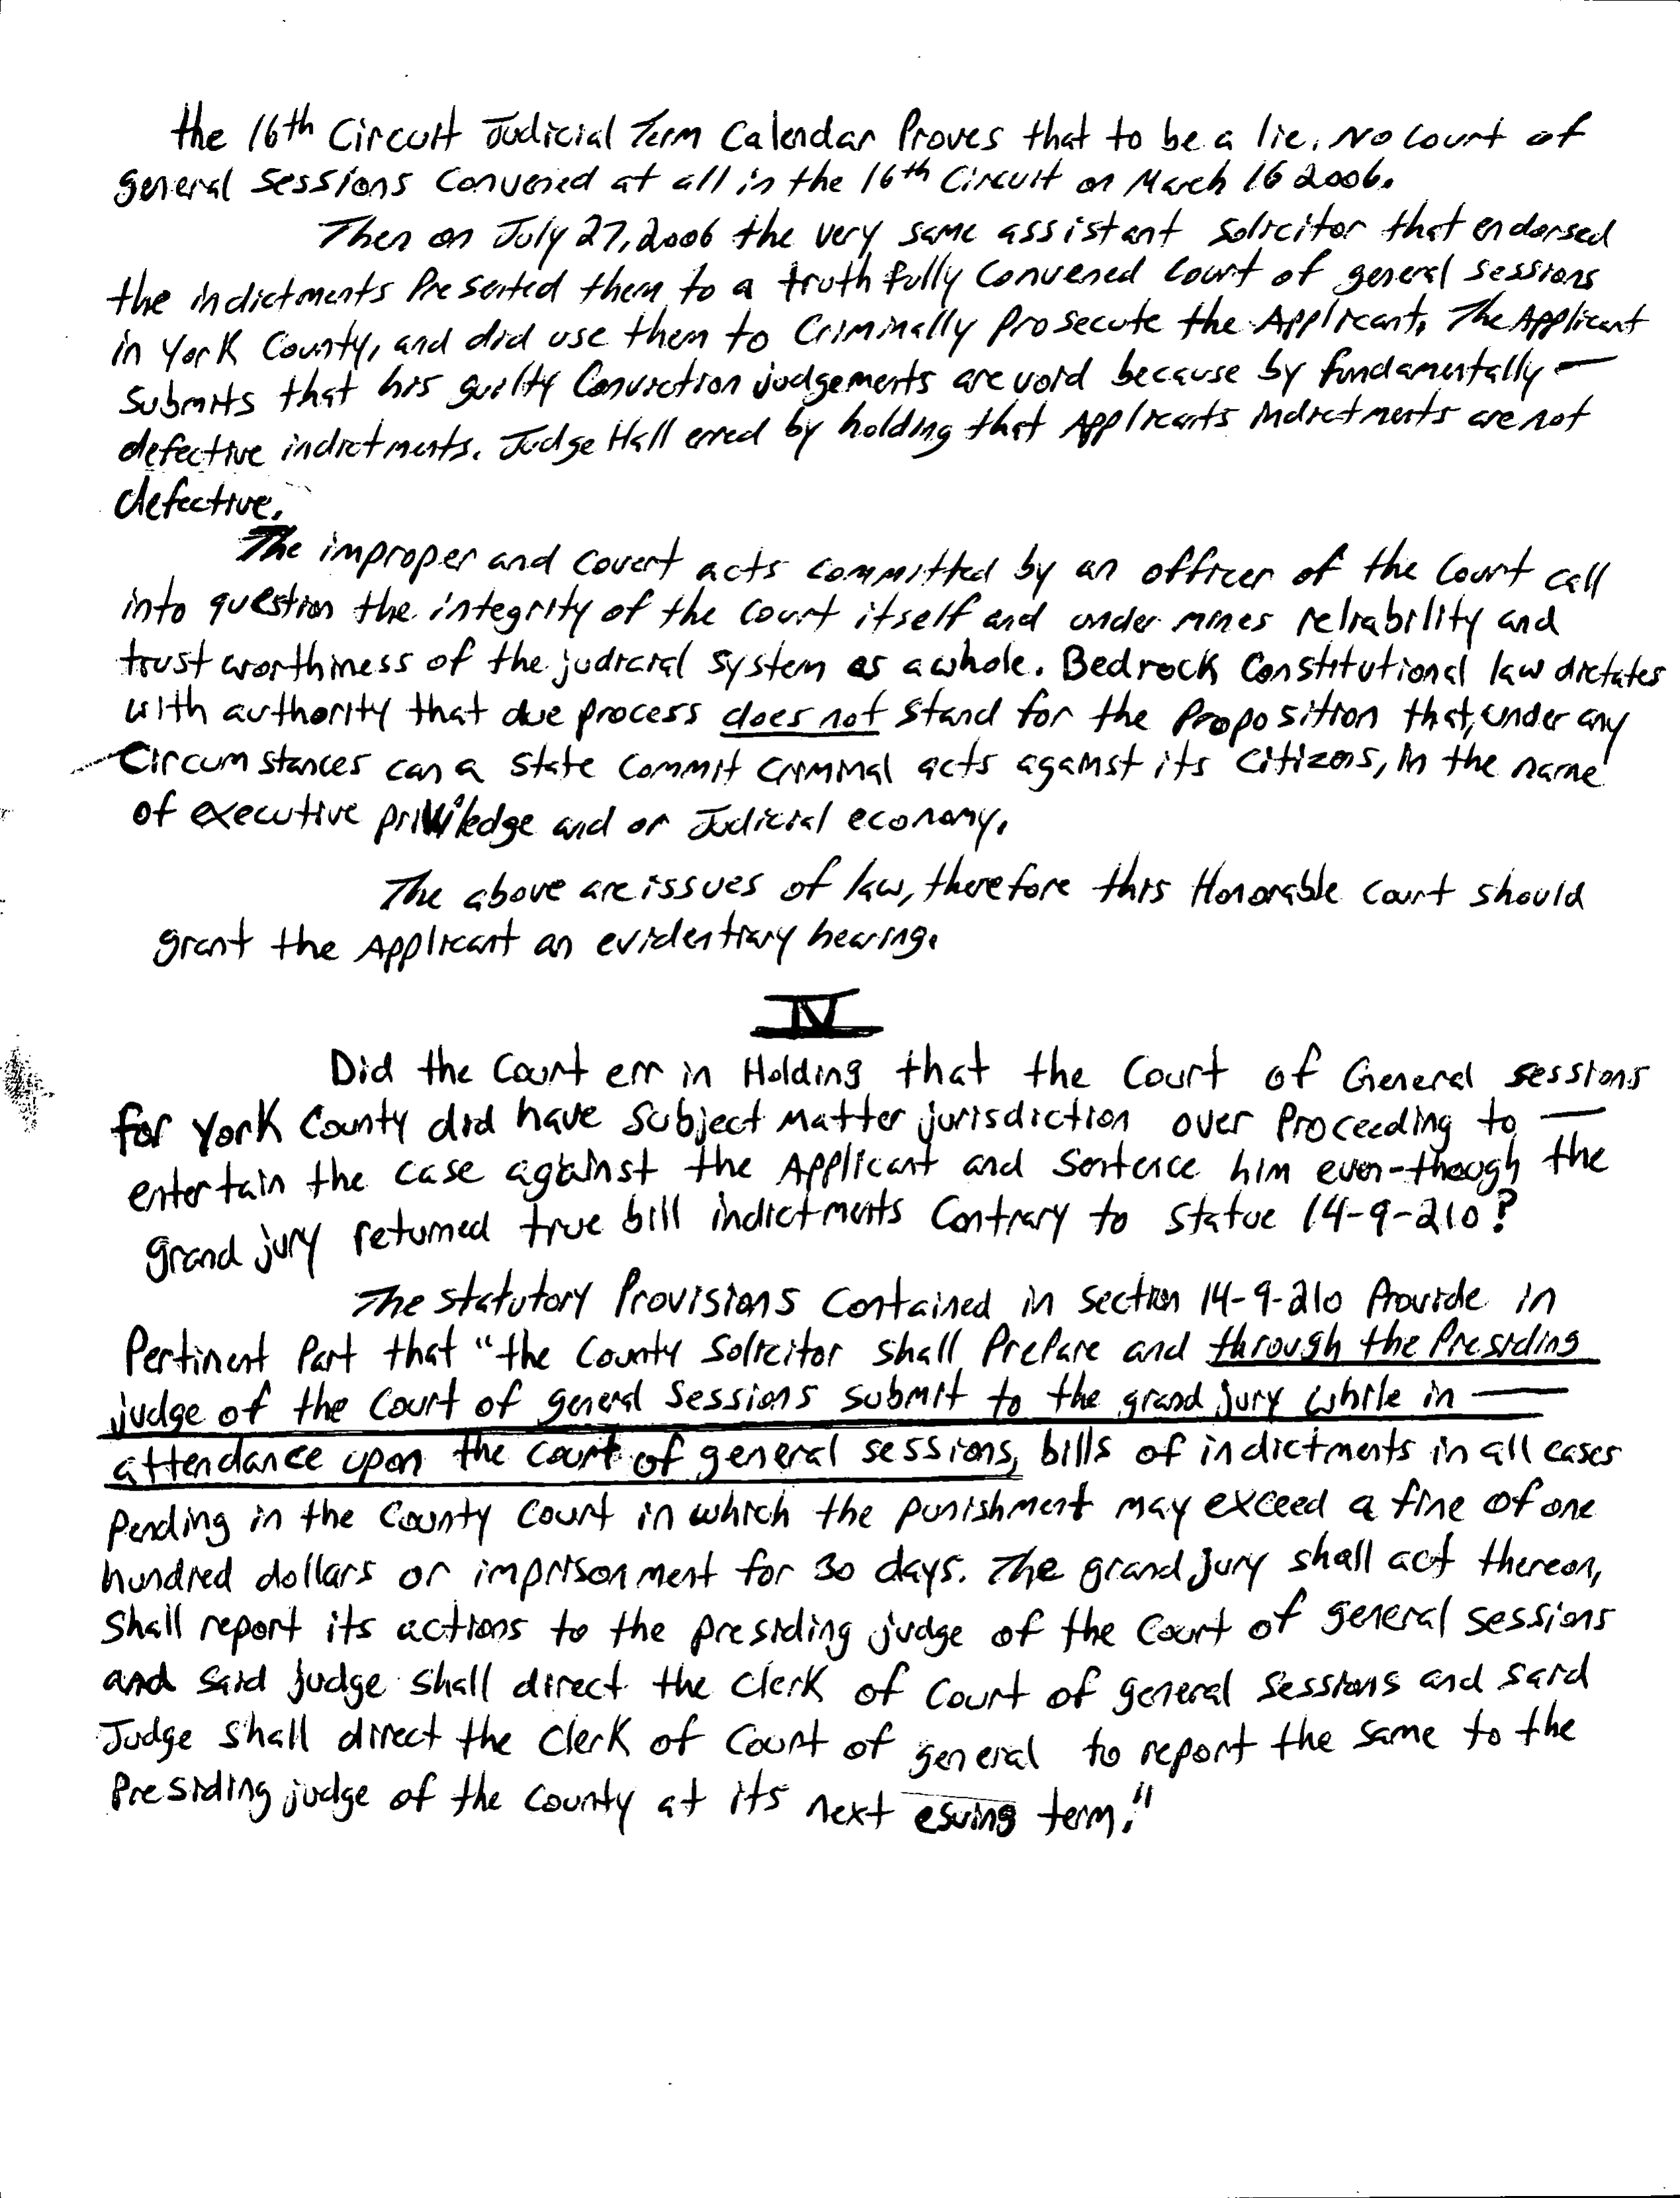 the 16th Circuit Judicial Term Calendar Proves that to be a lie. No Court of
general Sessions Convened at all in the 16th Circuit on March 16 2006.
Then on July 27, 2006 the very same assistant Solicitor that endorsed
the indictments Presented them to a truthfully Convened Court of general sessions
in York County, and did use them to Criminally Prosecute the Applicant. The Applicant
Submits that his guilty Conviction judgements are void because by fundamentally —
defective indictments. Judge Hall erred by holding that Applicants indictments are not
defective.
The improper and covert acts committed by an officer of the Court call
into question the integrity of the Court itself and under mines reliability and
trust worthiness of the judicial system as a whole. Bedrock Constitutional law dictates
with authority that due process does not stand for the Proposition that, under any
Circumstances can a State Commit Criminal acts against its Citizens, in the name
of executive priviledge and or Judicial economy.
The above are issues of law, therefore this Honorable Court should
grant the Applicant an evidentiary hearing.
IV
Did the Court err in Holding that the Court of General sessions
for York County did have Subject Matter jurisdiction over Proceeding to —
entertain the case against the Applicant and Sentence him even-though the
grand jury returned true bill indictments Contrary to Statue 14-9-210?
The Statutory Provisions Contained in Section 14-9-210 Provide in
Pertinent Part that "the County Solicitor shall Prepare and through the Presiding
judge of the Court of general Sessions submit to the grand jury while in —
attendance upon the court of general sessions, bills of indictments in all cases
Pending in the County Court in which the punishment may exceed a fine of one
hundred dollars or imprisonment for 30 days. The grand jury shall act thereon,
Shall report its actions to the presiding judge of the Court of general sessions
and said judge shall direct the Clerk of Court of general Sessions and said
Judge shall direct the Clerk of Court of general to report the same to the
Presiding judge of the County at its next esuing term."